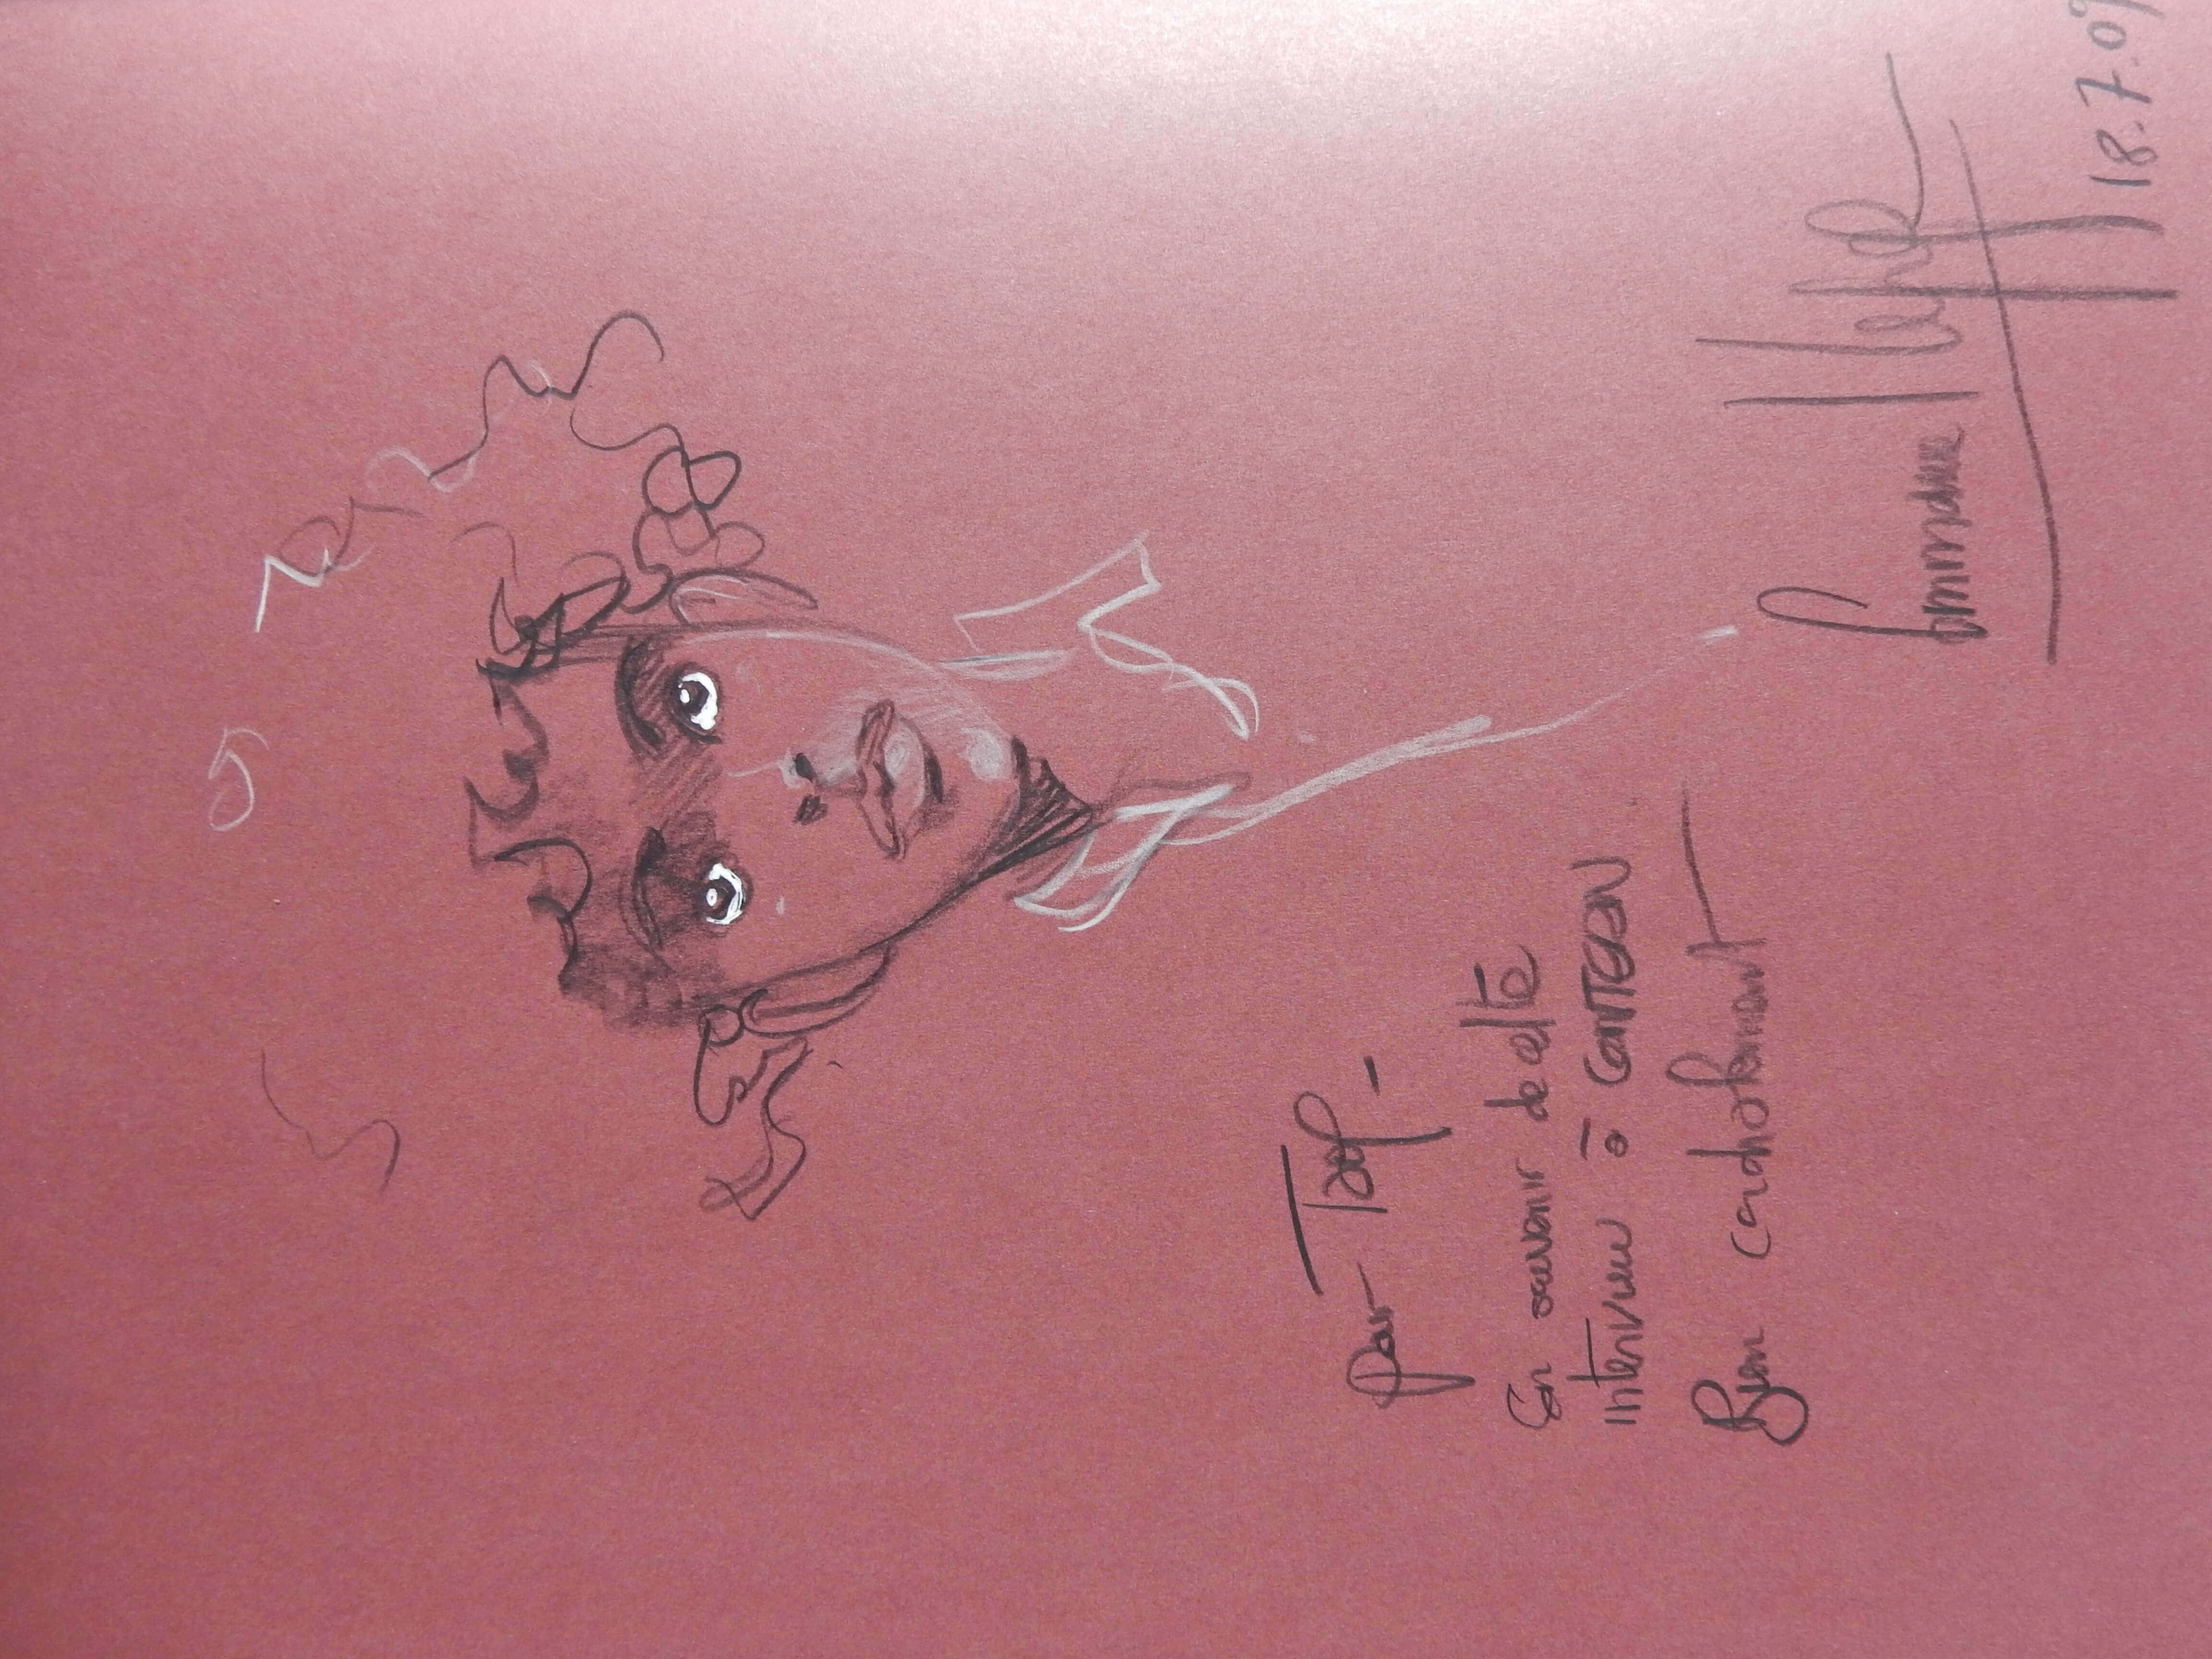 pour Taof -
En souvenir de cette
interview à CONTERN
Bien cordialement
Emmanuel Lepage
18.7.09